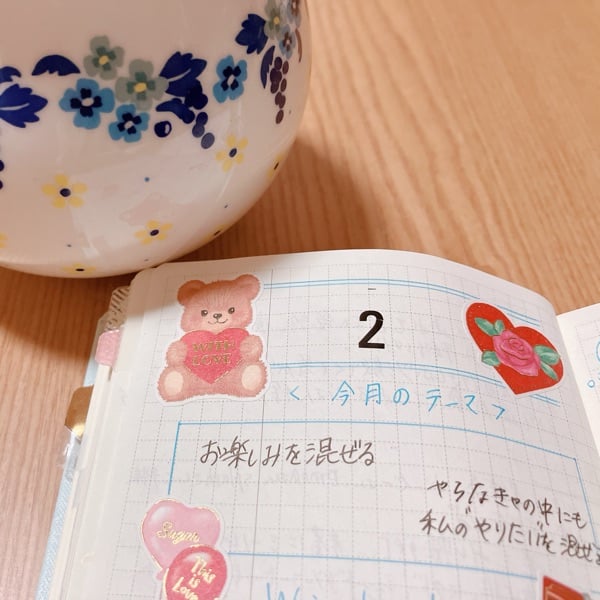 2
WITH
LOVE
<今月のテーマ>
お楽しみを混ぜる
やらなきゃの中にも
私の"やりたい"を混ぜる
This
is
Love